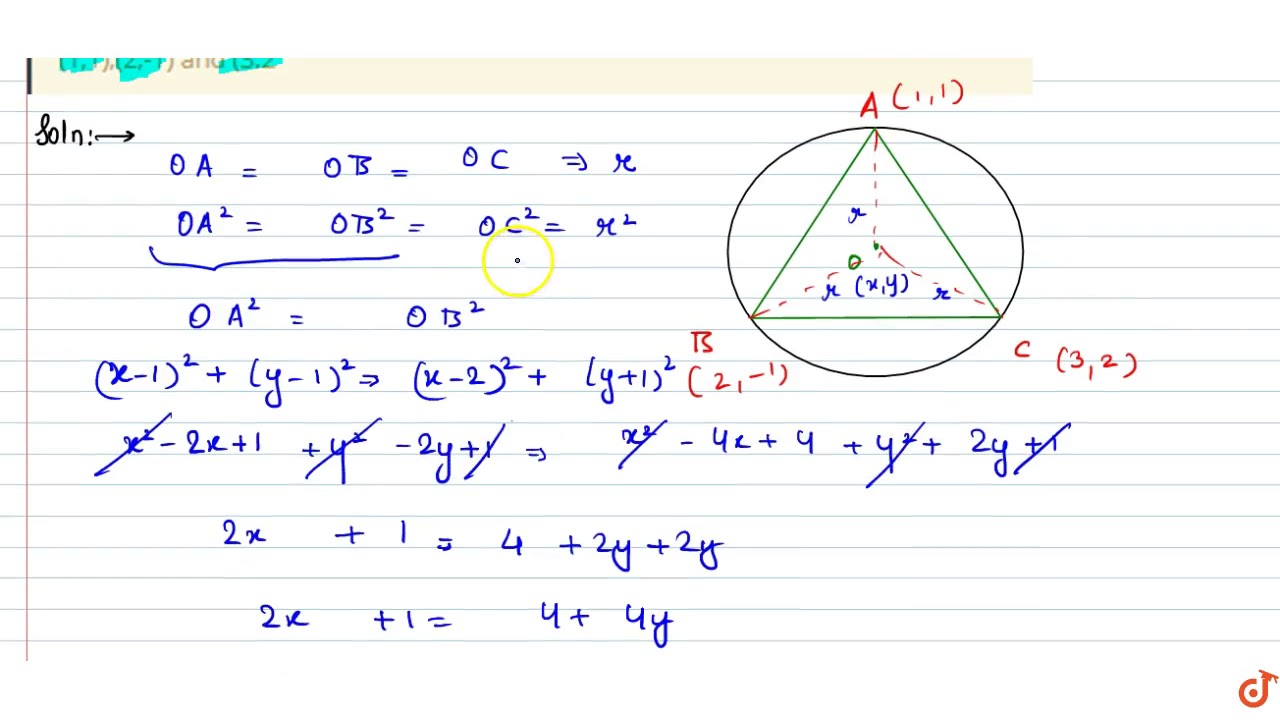 (1,1),(2,-1) and (3,2
Soln:→
OA = OB = OC ⇒ r
OA² = OB² = OC² = r²
OA² = OB²
(x-1)² + (y-1)² ⇒ (x-2)² + (y+1)²
x² - 2x+1 + y² - 2y+1 ⇒ x² - 4x + 4 + y² + 2y +1
2x + 1 = 4 + 2y + 2y
2x + 1 = 4 + 4y
A (1,1)
r
O
r (x,y) r
B
(2,-1)
C (3,2)